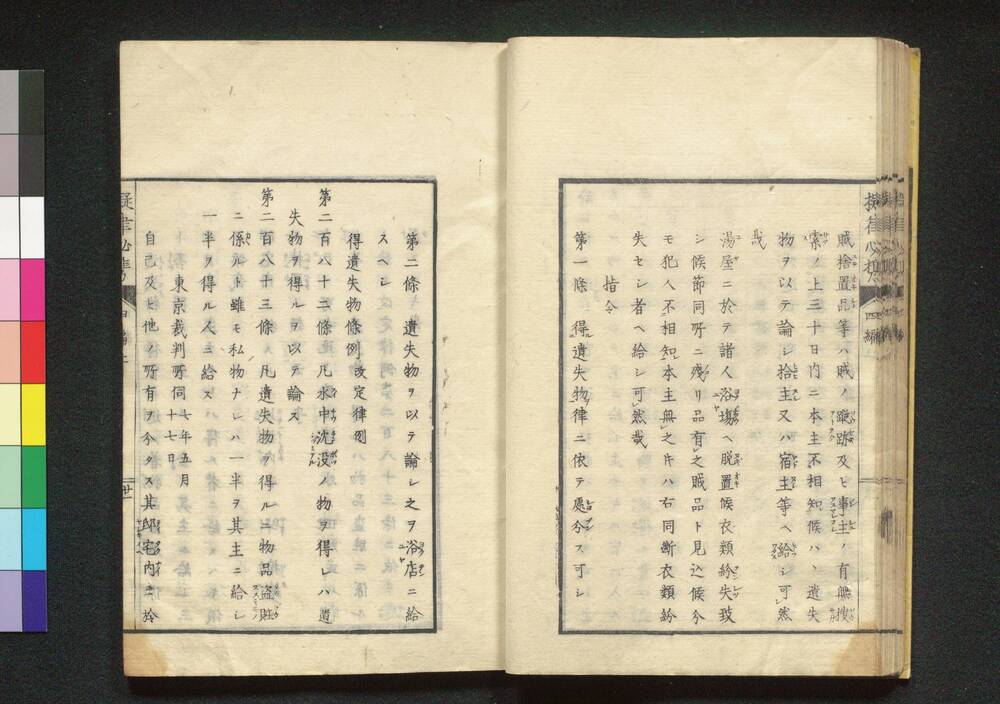 賊捨置品等ハ賊ノ蹤跡及ヒ事主ノ有無捜
索ノ上三十日内ニ本主不相知候ハヽ遺失
物ヲ以テ論シ拾主又ハ宿主等ヘ給シ可然
哉
湯屋ニ於テ諸人浴場ヘ脱置候衣類紛失致
シ候節同所ニ残リ品有之賊品ト見込候今
モ犯人不相知本主無之片ハ右同断衣類紛
失セシ者ヘ給シ可然哉
指令
第一條 得遺失物律ニ依テ處分ス可シ
第二條 遺失物ヲ以テ論シ之ヲ浴店ニ給
スヘシ
得遺失物條例 改定律例
第二百八十二條凡水中沈没ノ物ヲ得レハ遺
失物ヲ得ルヲ以テ論ス
第二百八十三條凡遺失物ヲ得ルニ物品盗賍
ニ係ルト雖モ私物ナレハ一半ヲ其主ニ給シ
一半ヲ得ル人ニ給ス
東京裁判所伺 七年五月十七日
自己及ヒ他ノ所有ヲ今タス其邸宅内ニ於
四編